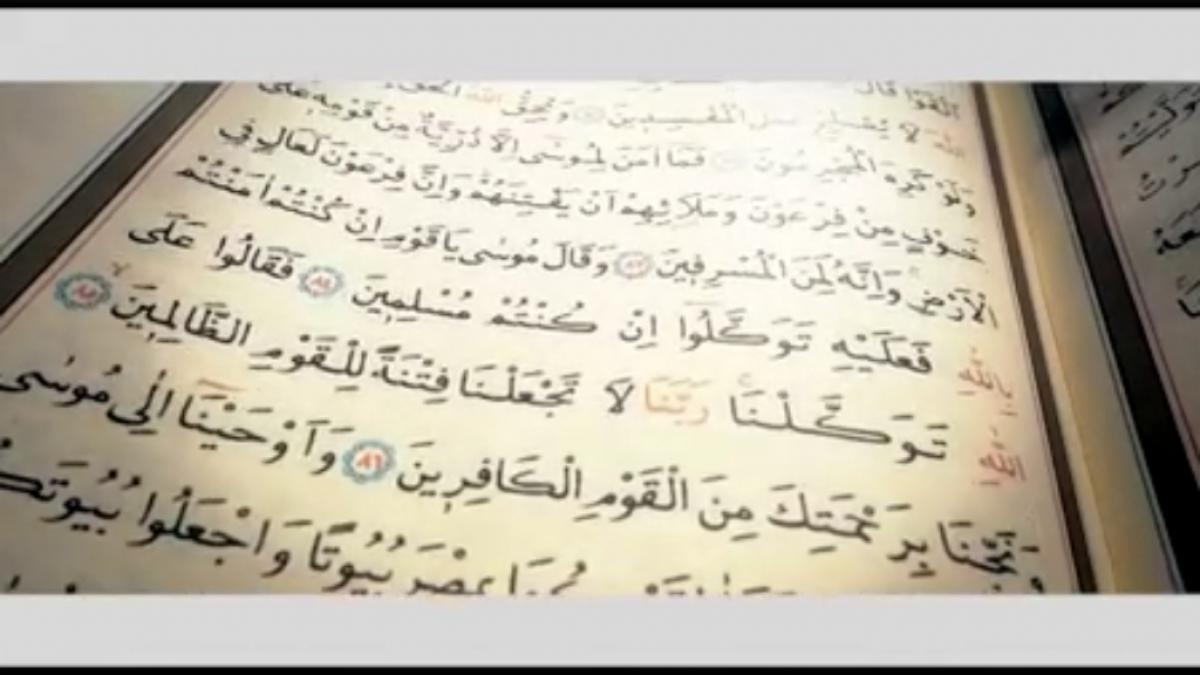 اَلْقَوْا قَالَ
اللّٰهَ لَا يُصْلِحُ عَمَلَ الْمُفْسِدِينَ وَيُحِقُّ اللّٰهُ الْحَقَّ
وَلَوْ كَرِهَ الْمُجْرِمُونَ فَمَا اٰمَنَ لِمُوسٰى اِلَّا ذُرِّيَّةٌ مِنْ قَوْمِهٖ عَلٰى
خَوْفٍ مِنْ فِرْعَوْنَ وَمَلَائِهِمْ اَنْ يَفْتِنَهُمْ وَاِنَّ فِرْعَوْنَ لَعَالٍ فِي
الْاَرْضِ وَاِنَّهُ لَمِنَ الْمُسْرِفِينَ ٨٣ وَقَالَ مُوسٰى يَا قَوْمِ اِنْ كُنْتُمْ اٰمَنْتُمْ
بِاللّٰهِ فَعَلَيْهِ تَوَكَّلُوا اِنْ كُنْتُمْ مُسْلِمِينَ ٨٤ فَقَالُوا عَلَى
اللّٰهِ تَوَكَّلْنَا رَبَّنَا لَا تَجْعَلْنَا فِتْنَةً لِلْقَوْمِ الظَّالِمِينَ ٨٥
وَنَجِّنَا بِرَحْمَتِكَ مِنَ الْقَوْمِ الْكَافِرِينَ ٨٦ وَاَوْحَيْنَا اِلٰى مُوسٰى
بِمِصْرَ بُيُوتًا وَاجْعَلُوا بُيُوتَكُ